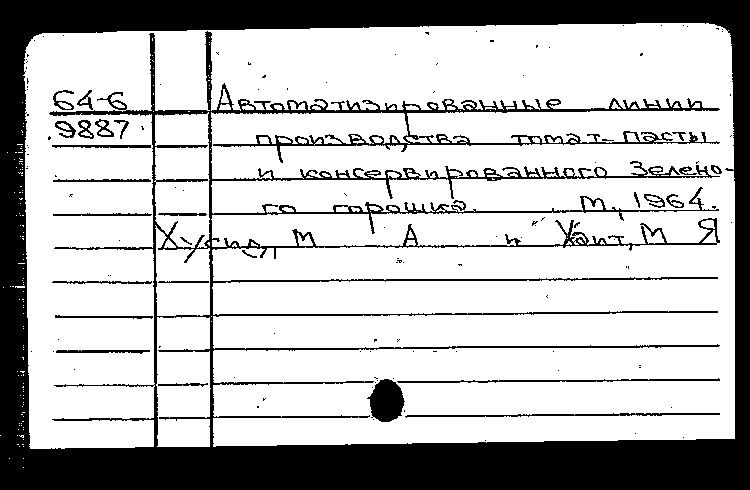 64-6 Автоматизированные линии
9887 производства томат-пасты
и консервированного зелено-
го горошка. М., 1964.
Хусид, М А и Хаит, М Я